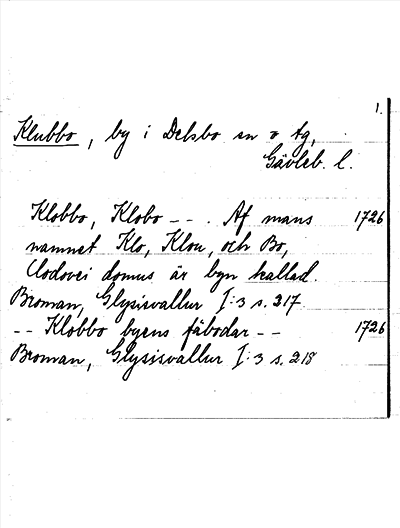 1.
Klubbo, by i Delsbo sn o tg,
Gävleb. l.
Klobbo, Klobo - - . Af mans 1726
namnet Klo, Klou, och Bo,
Clodovei domus är byn kallad.
Broman, Glysisvallur I:3 s. 217
- - Klobbo byens fäbodar - - 1726
Broman, Glysisvallur I:3 s. 218